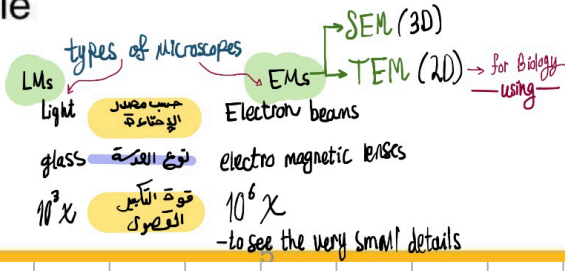 le
types of Microscopes
SEM (3D)
LMs
EMs
TEM (2D) → for Biology
using
Light حسب مصدر الإضاءة Electron beams
glass نوع العدسة electro magnetic lenses
10³x قوة التكبير القصوى 10⁶ x
-to see the very small details
5